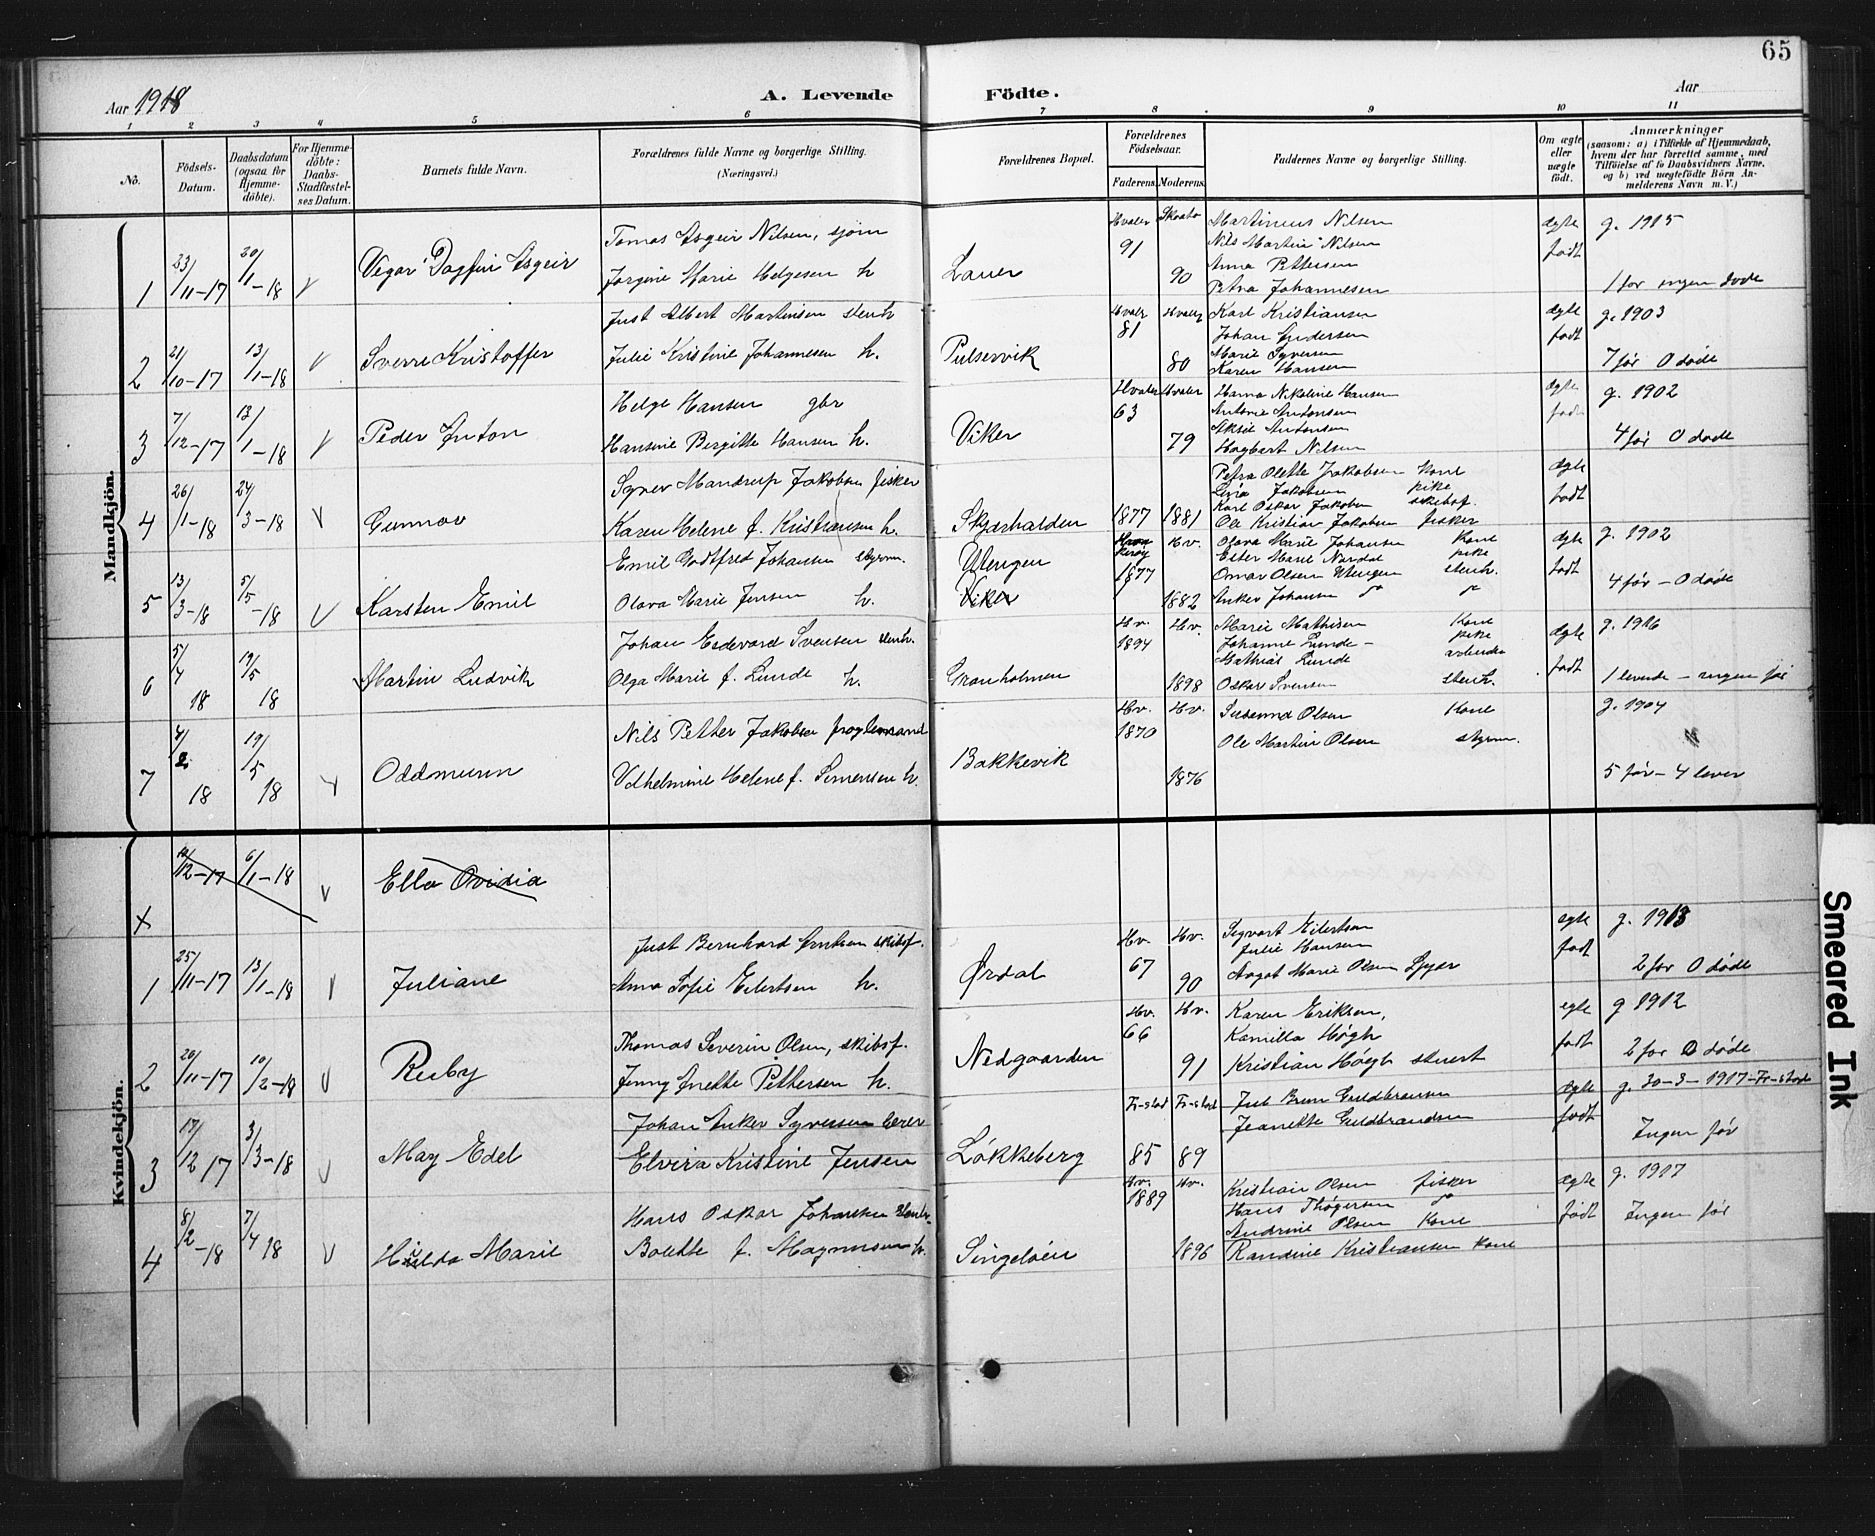 65
Aar 1918
A. Levende Födte.
Aar
1 2 3 4 5 6 7 8 9 10 11
No.
Födsels-Datum.
Daabsdatum (ogsaa for Hjemmedöbte).
For Hjemmedöbte: Daabs-Stadfæstelses Datum.
Barnets fulde Navn.
Forældrenes fulde Navne og borgerlige Stilling. (Næringsvei.)
Forældrenes Bopæl.
Forældrenes Födselsaar.
Faderens. Moderens.
Faddernes Navne og borgerlige Stilling.
Om ægte eller uægte födt.
Anmærkninger
(saasom: a) i Tilfælde af Hjemmedaab, hvem der har forrettet samme, med Tilföielse af to Daabsvidners Navne, og b) ved uægtefödte Börn Anmelderens Navn m. V.)
Mandkjön.
1 23/11-17 20/1-18 V Vegar Dagfin Asgeir
Tomas Asgeir Nilsen, sjøm
Jørgine Marie Helgesen h
Lauer
Hvaler 91 Skaatø 90
Martinius Nilsen
Nils Martin Nilsen
Anna Pettersen
Petra Johannesen
ægte født
g. 1915
1 før ingen døde
2 21/10-17 13/1-18 V Sverre Kristoffer
Just Albert Martinsen stenh
Julie Kristine Johannesen h.
Pulservik
Hvaler 81 Hvaler 80
Karl Kristiansen
Johan Andersen
Marie Syversen
Karen Hansen
ægte født
g. 1903
7 før 0 døde
3 7/12-17 13/1-18 V Peder Anton
Helge Hansen gbr
Hansine Bergitte Hansen h.
Viker
Hvaler 63 Hvaler 79
Hanna Nikoline Hansen
Antonie Antonsen
Aksel Antonsen
Hagbart Nilsen
ægte født
g. 1902
4 før 0 døde
4 26/1-18 24/3-18 V Gunnar
Syver Mandrup Jakobsen fisker
Karen Helene f. Kristiansen h.
Skjærhalden
1877 1881
Petra Olette Jakobsen kone
Lina Jakobsen pike
Karl Oskar Jakobsen skibsf.
Ole Kristian Jakobsen fisker
ægte født
g. 1902
4 før - 0 døde
5 13/3-18 5/5-18 V Karsten Emil
Emil Godtfred Johansen styrm.
Olava Marie Jensen h.
Utengen
Viker
1877 Hv. 1882
Olava Marie Johansen Kone
Ester Marie Nordal pike
Omar Olsen Utengen stenh.
Anker Johansen do do
ægte født
6 5/4 18 19/5 18 Martin Ludvik
Johan Edevard Svensen stenh.
Olga Marie f. Lunde h.
Granholmen
Hv. 1894 Hv. 1898
Marie Mathisen Kone
Johanne Lunde - pike
Mathias Lunde arbeider
Oskar Svensen stenh.
ægte født
g. 1916
1 levende - ingen før
7 18 19/5 18 Oddmunn
Nils Petter Jakobsen
Vilhelmine Helene f. Simensen h.
Bakkevik
Hv. 1870 Hv. 1876
Susanna Olsen Kone
Ole Martin Olsen styrm.
g. 1904
5 før - 4 lever
Kvindekjön.
X 12-17 6/1-18 V Ella Ovidia
1 25/11-17 13/1-18 V Juliane
Just Bernhard Arntsen skibsf.
Anna Sofie Eilertsen h.
Ørdal
Hv. 67 Hv. 90
Sigvart Eilertsen
Julie Hansen
Aagot Marie Olsen
ægte født
g. 1913
2 før 0 døde
2 20/11-17 10/2-18 V Ruby
Thomas Severin Olsen, skibsf.
Jenny Anette Pettersen h.
Nedgaarden
Hv. 66 Hv. 91
Karen Eriksen,
Kamilla Høgh
Kristian Høgh stuert
ægte født
g 1912
2 før 0 døde
3 17/12 17 3/3-18 V May Edel
Johan Anker Syversen lærer
Elvira Kristine Jensen
Løkkeberg
Fr-stad 85 Fr-stad 89
Jul Brun Guldbransen
Jeanette Guldbrandsen
ægte født
g. 30-3-1917-Fr-stad
Ingen før
4 8/2-18 7/4 18 V Hilda Marie
Hans Oskar Johansen stenh.
Bolette f. Magnusen h.
Singeløen
Hv. 1889 Hv. 1896
Kristian Olsen fisker
Hans Thøgersen do
Andrine Olsen Kone
Randine Kristiansen kone
ægte født
g. 1917
Ingen før
Smeared Ink